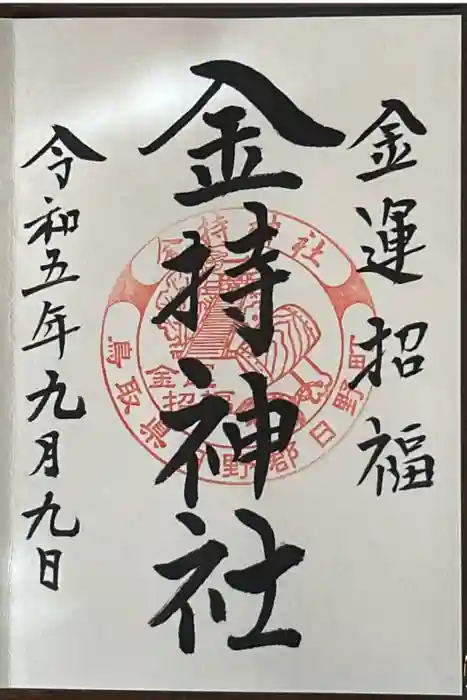 金運招福
金持神社
令和五年九月九日
金持神社
金運
招福
鳥取県日野郡日野町